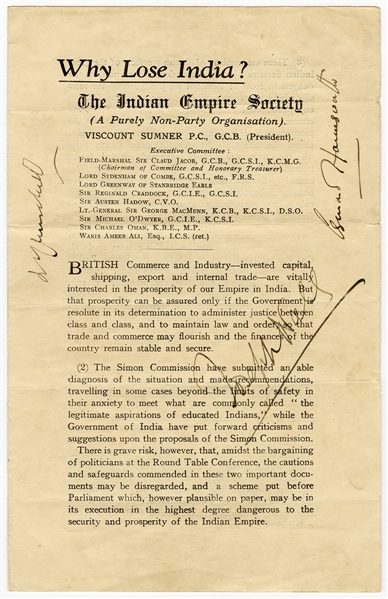 Why Lose India?
The Indian Empire Society
(A Purely Non-Party Organisation).
VISCOUNT SUMNER P.C., G.C.B. (President).
Executive Committee:
FIELD-MARSHAL SIR CLAUD JACOB, G.C.B., G.C.S.I., K.C.M.G.
(Chairman of Committee and Honorary Treasurer)
LORD SYDENHAM OF COMBE, G.C.S.I., etc., F.R.S.
LORD GREENWAY OF STANBRIDGE EARLS
SIR REGINALD CRADDOCK, G.C.I.E., G.C.S.I.
SIR AUSTEN HADOW, C.V.O.
LT.-GENERAL SIR GEORGE MACMUNN, K.C.B., K.C.S.I., D.S.O.
SIR MICHAEL O'DWYER, G.C.I.E., K.C.S.I.
SIR CHARLES OMAN, K.B.E., M.P.
WARIS AMEER ALI, ESQ., I.C.S. (ret.)
BRITISH Commerce and Industry—invested capital,
shipping, export and internal trade—are vitally
interested in the prosperity of our Empire in India. But
that prosperity can be assured only if the Government is
resolute in its determination to administer justice between
class and class, and to maintain law and order, so that
trade and commerce may flourish and the finances of the
country remain stable and secure.
(2) The Simon Commission have submitted an able
diagnosis of the situation and made recommendations,
travelling in some cases beyond the limits of safety in
their anxiety to meet what are commonly called "the
legitimate aspirations of educated Indians," while the
Government of India have put forward criticisms and
suggestions upon the proposals of the Simon Commission.
There is grave risk, however, that, amidst the bargaining
of politicians at the Round Table Conference, the cautions
and safeguards commended in these two important docu-
ments may be disregarded, and a scheme put before
Parliament which, however plausible on paper, may be in
its execution in the highest degree dangerous to the
security and prosperity of the Indian Empire.